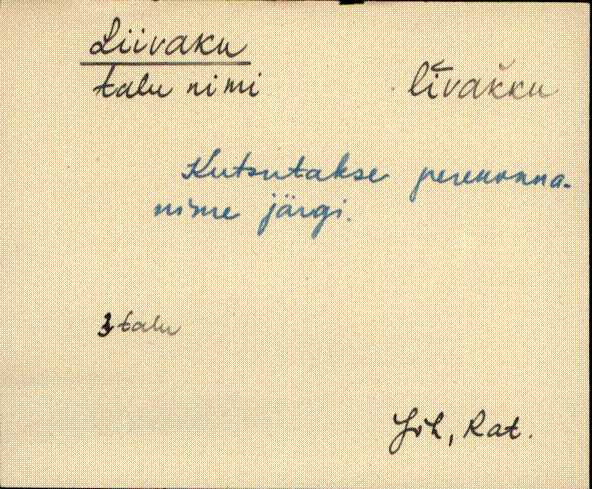 Liivaku
talu nimi līvak̆ku
Kutsutakse perekonna-
nime järgi.
3 talu
Jõh, Rat.